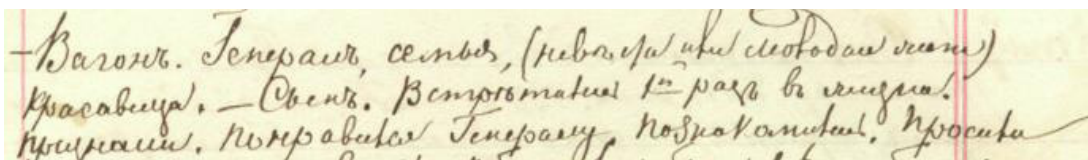 – Вагонъ. Генералъ, семья, (невѣста или молодая жена)
красавица. – Свенъ. Встрѣтились 1й разъ въ жизни.
Понравился Генералу. Познакомились. Просили